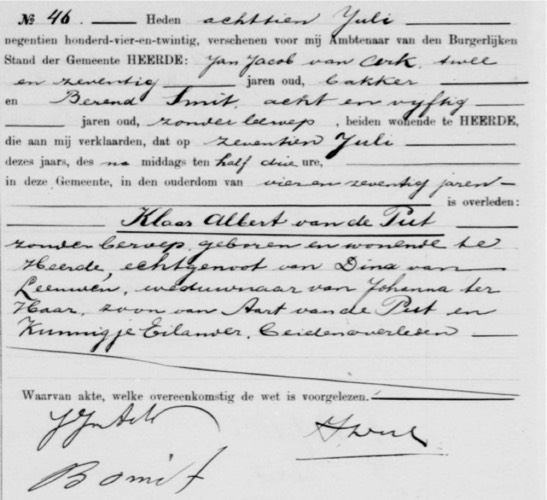 No 46. Heden achttien Juli
negentien honderd-vier-en-twintig, verschenen voor mij Ambtenaar van den Burgerlijken
Stand der Gemeente HEERDE: Jan Jacob van Ark, twee
en zeventig jaren oud, bakker
en Berend Smit, acht en vijftig
jaren oud, zonder beroep, beiden wonende te HEERDE,
die aan mij verklaarden, dat op zeventien Juli
dezes jaars, des na middags ten half drie ure,
in deze Gemeente, in den ouderdom van vier en zeventig jaren
is overleden:
Klaas Albert van de Put
zonder beroep, geboren en wonende te
Heerde, echtgenoot van Dina van
Leeuwen, weduwnaar van Johanna ter
Haar, zoon van Aart van de Put en
Kunnigje Eilander, beiden overleden
Waarvan akte, welke overeenkomstig de wet is voorgelezen.
JJvArk
B Smit